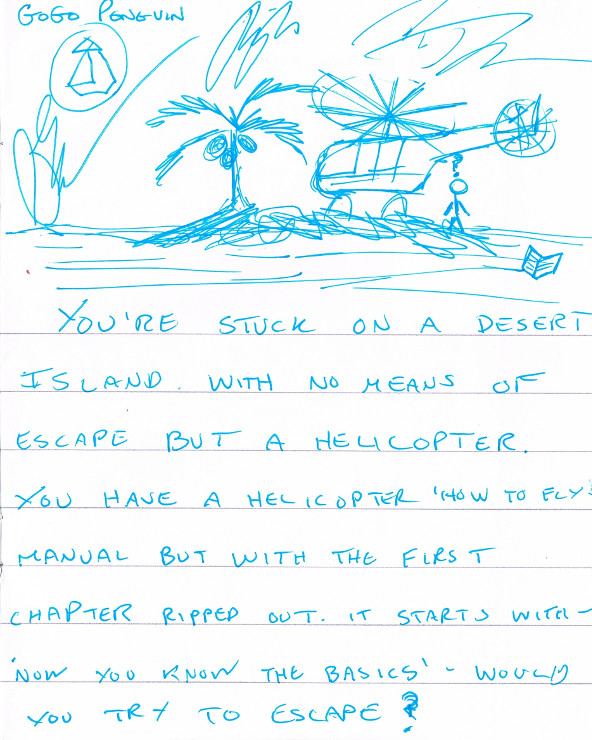 GOGO PENGUIN
?
YOU'RE STUCK ON A DESERT
ISLAND. WITH NO MEANS OF
ESCAPE BUT A HELICOPTER.
YOU HAVE A HELICOPTER 'HOW TO FLY'
MANUAL BUT WITH THE FIRST
CHAPTER RIPPED OUT. IT STARTS WITH -
'NOW YOU KNOW THE BASICS' - WOULD
YOU TRY TO ESCAPE?